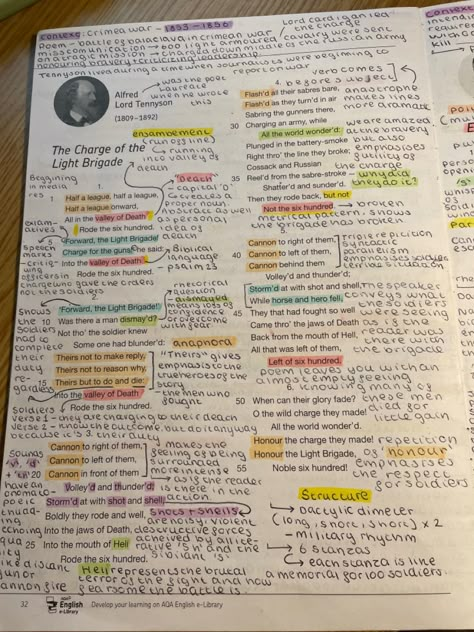 context: Crimea war - 1853-1856
Lord cardigan lead the charge
Poem - battle of balaclava in crimean war
miscommunication → 600 light armoured cavalry were sent
on a tragic mission → charged down middle of the russian army
honouring bravery + criticising leadership
Tennyson lived during a time when journalists were beginning to
report on war
Alfred
Lord Tennyson
(1809–1892)
was the poet
laureate
when he wrote
this
The Charge of the
Light Brigade
enjambement
(run on line)
→ running
into valley of
death
Beggining
in media
res
1 Half a league, half a league,
Half a league onward,
All in the valley of Death
Rode the six hundred.
5 'Forward, the Light Brigade!
Charge for the guns!' he said:
Into the valley of Death
Rode the six hundred.
"Death"
- capital 'D'
creates a
proper noun
Abstract as well
as personal
idea of
death
Biblical
language
- psalm 23
speech
marks
officers in
charge who gave the orders
not the soldiers
2
'Forward, the Light Brigade!'
10 Was there a man dismay'd?
Not tho' the soldier knew
Some one had blunder'd:
Theirs not to make reply,
Theirs not to reason why,
15 Theirs but to do and die:
Into the valley of Death
Rode the six hundred.
rhetorical
question
dismayed
means loss of
confidence
or overcome
with fear
anaphora
"Theirs" gives
emphasis to the
true heroes of the
story
- the men who
fought
shows
the
soldiers
had to
complete
their
duty
regardless
soldiers
verse 1 - they are charging to their death
verse 2 - know the outcome but do it anyway
because it's their duty
3.
Cannon to right of them,
Cannon to left of them,
20 Cannon in front of them
Volley'd and thunder'd;
Storm'd at with shot and shell,
Boldly they rode and well,
Into the jaws of Death,
25 Into the mouth of Hell
Rode the six hundred.
makes the
feeling of being
surrounded
more intense
→ as if the reader
is there in the
action
shots + shells
are noisy, violent
destructive forces
Hell represents the brutal
terror of the fight and how
fearsome the battle is.
4.
Flash'd all their sabres bare,
Flash'd as they turn'd in air
Sabring the gunners there,
30 Charging an army, while
All the world wonder'd:
Plunged in the battery-smoke
Right thro' the line they broke;
Cossack and Russian
35 Reel'd from the sabre-stroke
Shatter'd and sunder'd.
Then they rode back, but not
Not the six hundred.
verb comes
before subject
anastrophe
makes lines
more dramatic
we are amazed
at the bravery
but also
emphasises
futility of
the charge
- why did
they do it?
broken
metrical pattern. shows
the brigade has broken
5
Cannon to right of them,
40 Cannon to left of them,
Cannon behind them
Volley'd and thunder'd;
Storm'd at with shot and shell,
While horse and hero fell,
45 They that had fought so well
Came thro' the jaws of Death
Back from the mouth of Hell,
All that was left of them,
Left of six hundred.
Triple repitition
syntactic
parallelism
emphasises
The speaker
conveys what
the soldiers
were seeing
as if the
reader was
there with
the brigade
poem leaves you with an
almost empty feeling
6. knowing many of
these men
died for
little gain
50 When can their glory fade?
O the wild charge they made!
All the world wonder'd.
Honour the charge they made!
Honour the Light Brigade,
55 Noble six hundred!
repetition
of honour
emphasises
the respect
for soldiers
Structure
→ Dactylic dimeter
(long, short, short) x 2
- military rhythm
→ 6 stanzas
→ each stanza is like
a memorial for 100 soldiers.
32
English
e-Library
Develop your learning on AQA English e-Library